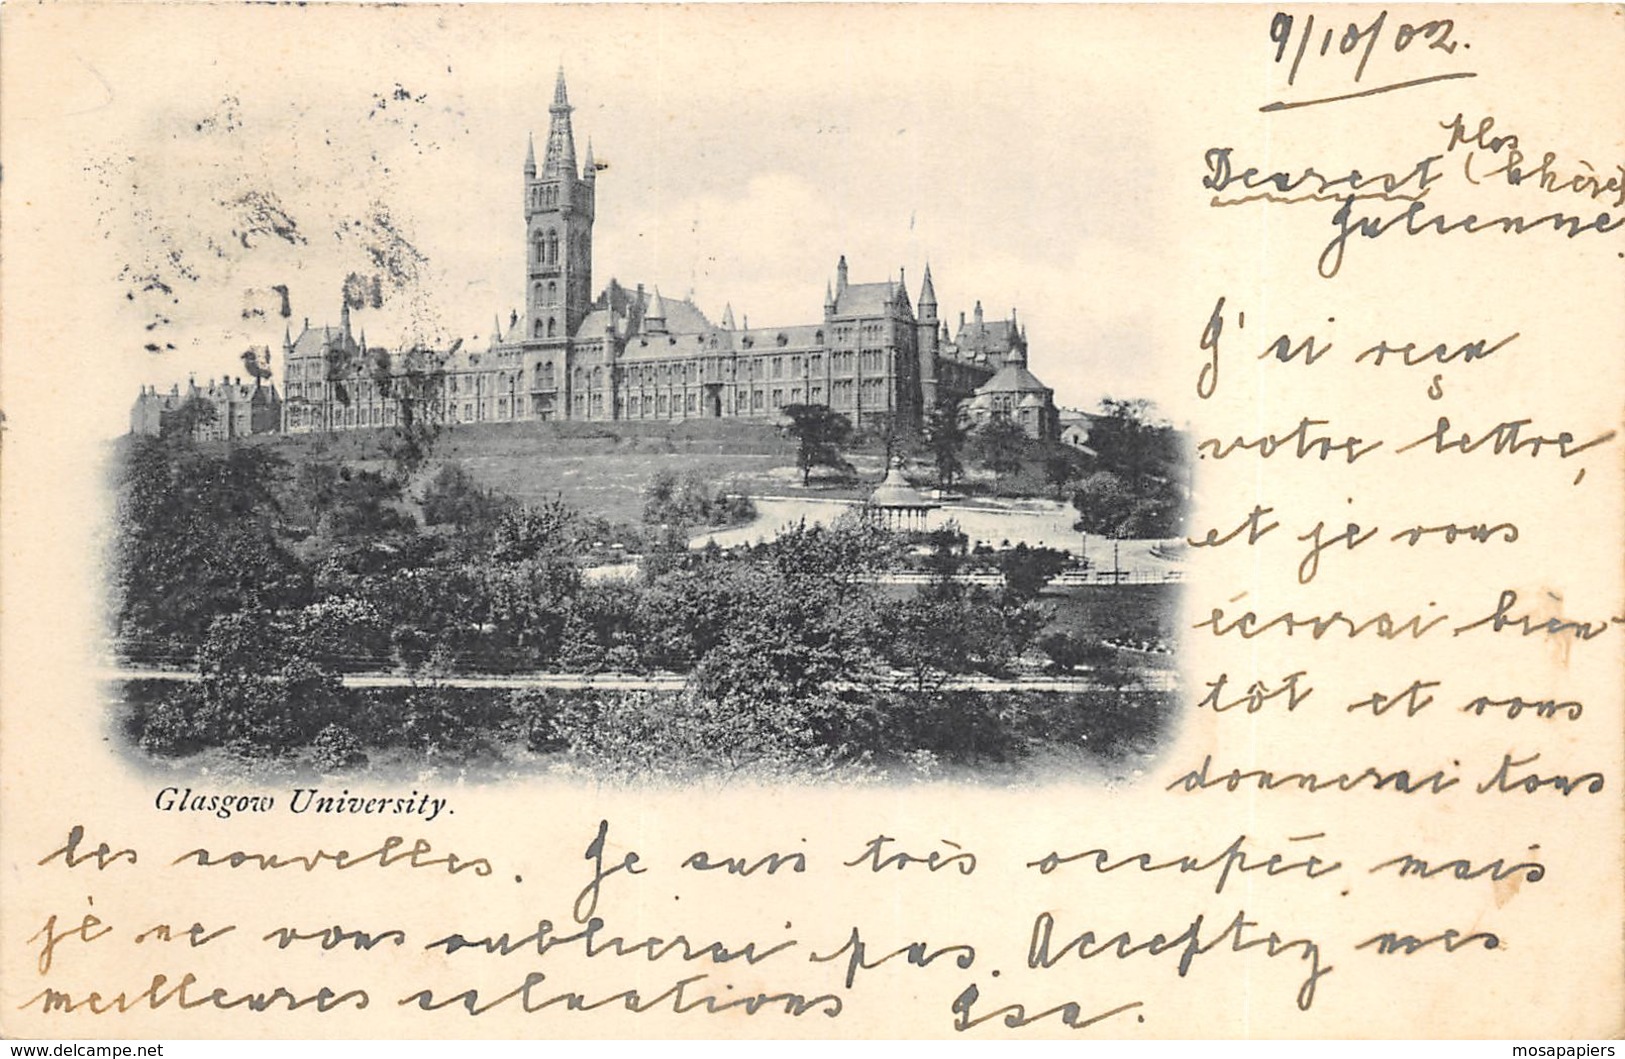 9/10/02.
plus
Dearest (chère)
Julienne.
J'ai reçu
votre lettre,
et je vous
écrirai bien-
tôt et vous
donnerai tous
Glasgow University.
les nouvelles. Je suis très occupée mais
je ne vous oublierai pas. Acceptez mes
meilleures saluations Isa.
www.delcampe.net
mosapapiers